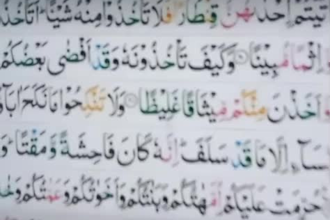 تَيْتُمْ إِحْدٰىهُنَّ قِنْطَارًا فَلَا تَأْخُذُوْا مِنْهُ شَيْـًٔا ؕ اَتَاْخُذُ
اِثْمًا مُّبِيْنًا ۝ وَكَيْفَ تَاْخُذُوْنَهٗ وَقَدْ اَفْضٰى بَعْضُكُمْ
وَّاَخَذْنَ مِنْكُمْ مِّيْثَاقًا غَلِيْظًا ۝ وَلَا تَنْكِحُوْا مَا نَكَحَ اٰبَآ
سَآءِ اِلَّا مَا قَدْ سَلَفَ ؕ اِنَّهٗ كَانَ فَاحِشَةً وَّمَقْتًا ؕ وَ
حُرِّمَتْ عَلَيْكُمْ اُمَّهٰتُكُمْ وَبَنٰتُكُمْ وَاَخَوٰتُكُمْ وَعَمّٰتُكُمْ وَخٰ